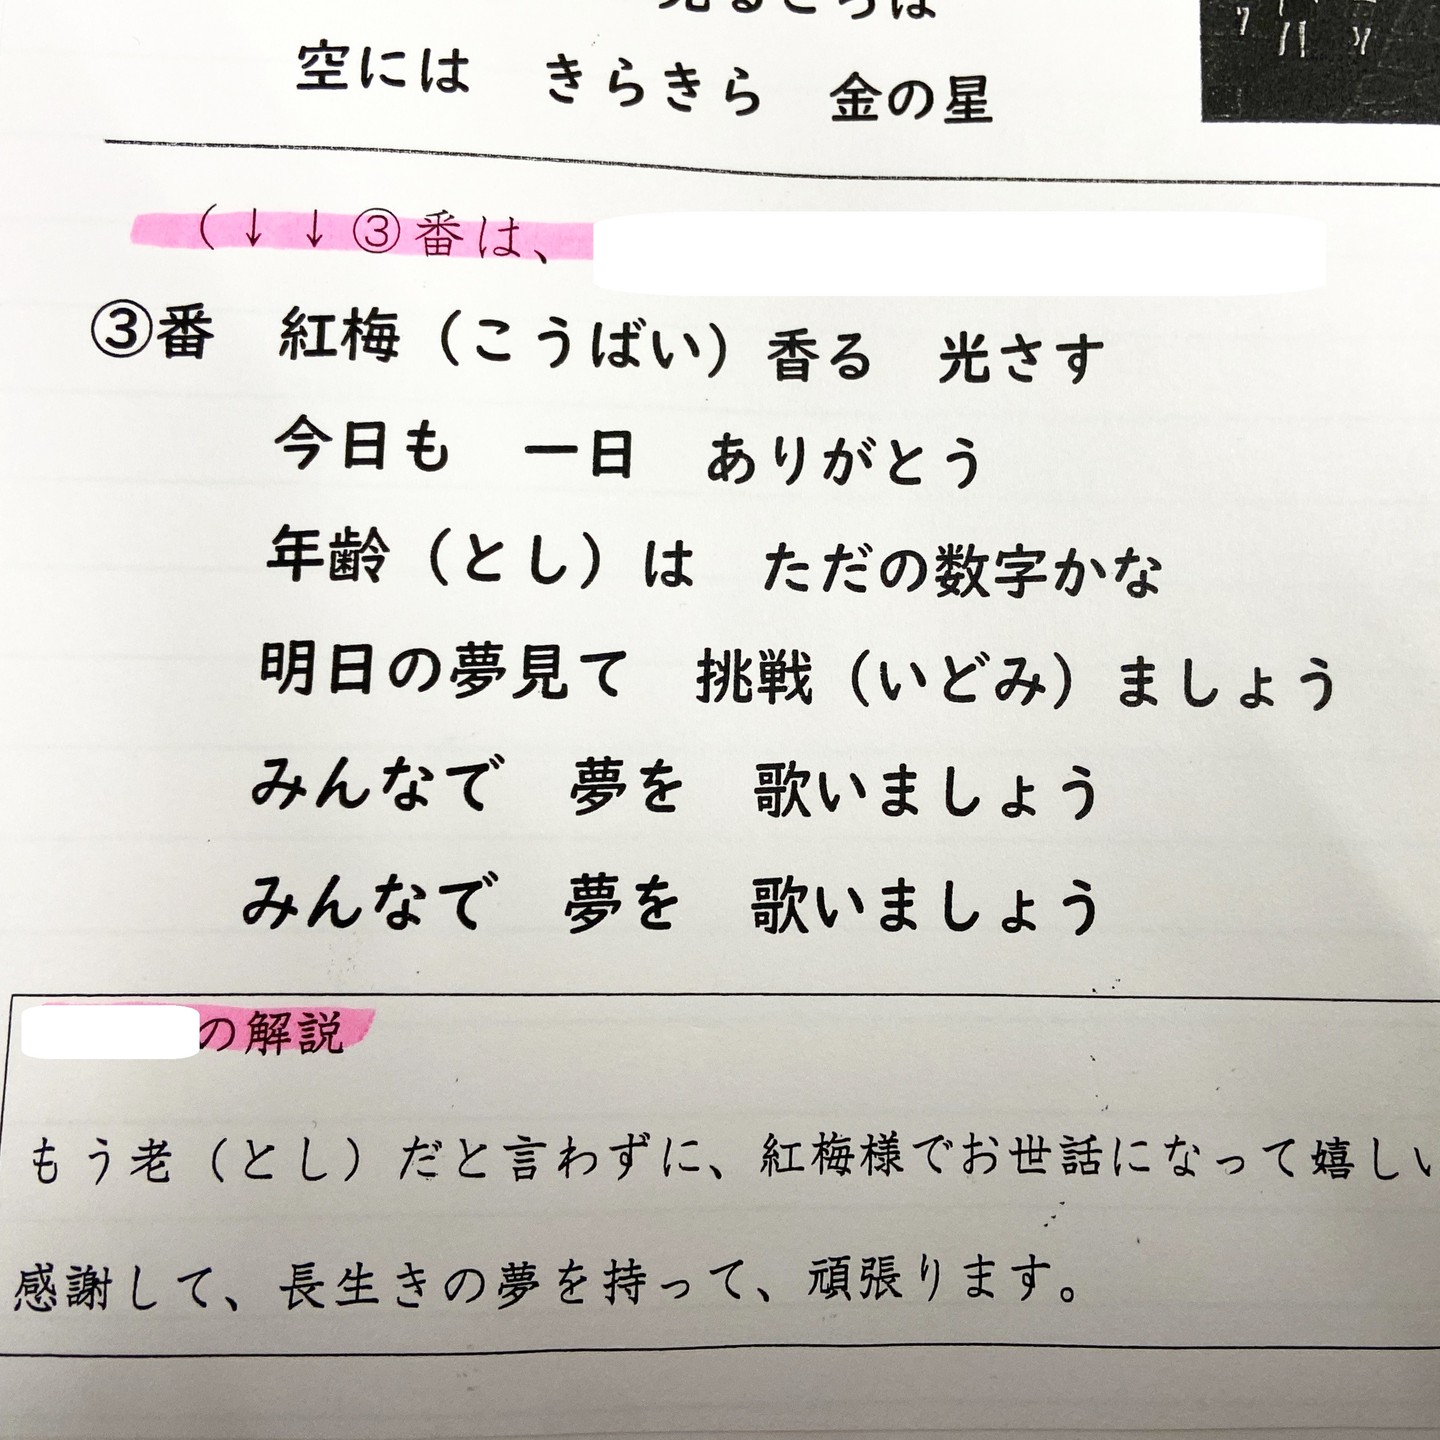 光るころは
空には　きらきら　金の星
（↓↓③番は、
③番　紅梅（こうばい）香る　光さす
今日も　一日　ありがとう
年齢（とし）は　ただの数字かな
明日の夢見て　挑戦（いどみ）ましょう
みんなで　夢を　歌いましょう
みんなで　夢を　歌いましょう
の解説
もう老（とし）だと言わずに、紅梅様でお世話になって嬉しい
感謝して、長生きの夢を持って、頑張ります。